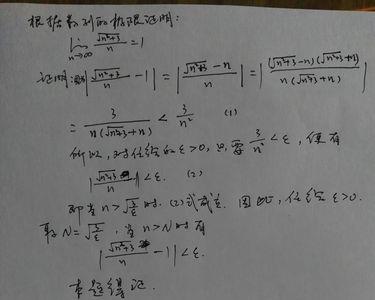 根据数列的极限证明:
lim n→∞ √(n²+3)/n = 1
证明: |√(n²+3)/n - 1| = |(√(n²+3) - n)/n| = |(√(n²+3) - n)(√(n²+3) + n)/(n(√(n²+3) + n))|
= 3/(n(√(n²+3) + n)) < 3/n² (1)
所以,对任给的ε>0,只要 3/n² < ε,便有
|√(n²+3)/n - 1| < ε. (2)
即当 n > √(3/ε) 时,(2)式成立. 因此,任给 ε>0.
取N = √(3/ε),当 n > N 时有
|√(n²+3)/n - 1| < ε.
本题得证.